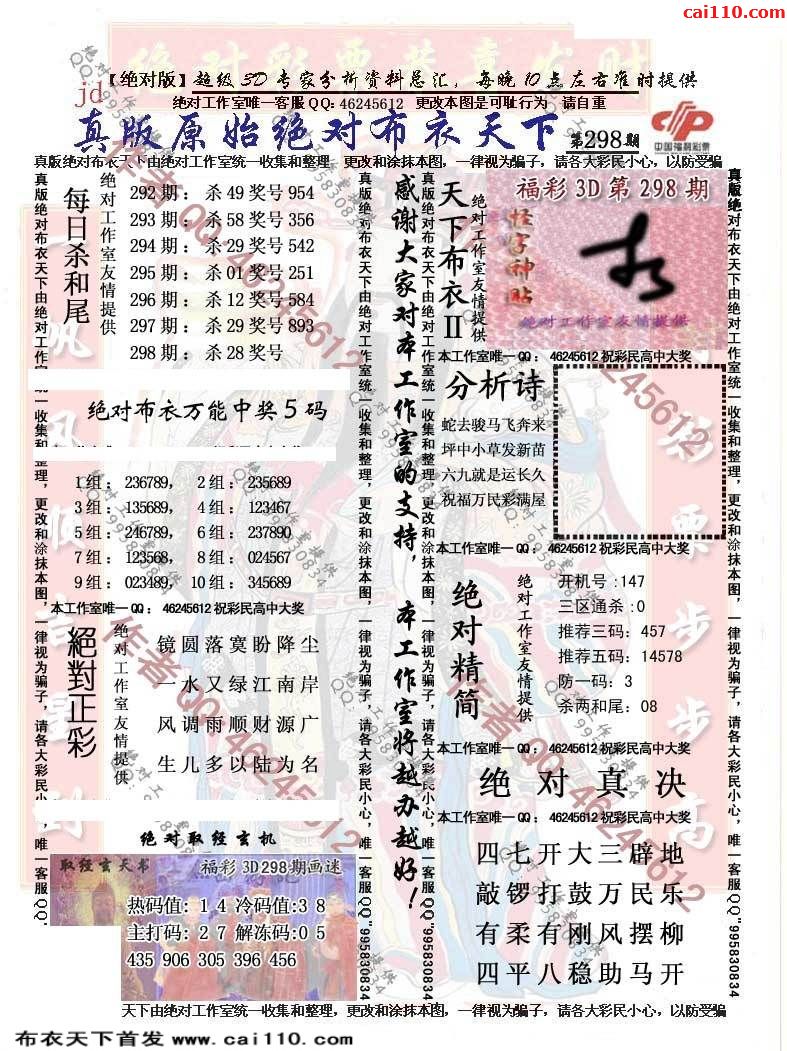 cai110.com
绝对彩票恭喜发财
【绝对版】超级3D专家分析资料总汇，每晚10点左右准时提供
jd
绝对工作室唯一客服QQ：46245612 更改本图是可耻行为 请自重
真版原始绝对布衣天下 第298期
中国福利彩票
真版绝对布衣天下由绝对工作室统一收集和整理，更改和涂抹本图，一律视为骗子，请各大彩民小心，以防受骗
每日杀和尾
绝对工作室友情提供
292期：杀49奖号954
293期：杀58奖号356
294期：杀29奖号542
295期：杀01奖号251
296期：杀12奖号584
297期：杀29奖号893
298期：杀28奖号
绝对布衣万能中奖5码
1组：236789， 2组：235689
3组：135689， 4组：123467
5组：246789， 6组：237890
7组：123568， 8组：024567
9组：023489， 10组：345689
本工作室唯一QQ：46245612祝彩民高中大奖
絕對正彩
绝对工作室友情提供
镜圆落寞盼降尘
一水又绿江南岸
风调雨顺财源广
生儿多以陆为名
绝对取经玄机
取经玄天书 福彩3D298期画迷
热码值：14冷码值:38
主打码：27解冻码:05
435 906 305 396 456
感谢大家对本工作室的支持，本工作室将越办越好！
天下布衣II
绝对工作室友情提供
福彩3D第298期
怪字神贴
绝对工作室友情提供
本工作室唯一QQ：46245612祝彩民高中大奖
分析诗
蛇去骏马飞奔来
坪中小草发新苗
六九就是运长久
祝福万民彩满屋
本工作室唯一QQ：46245612祝彩民高中大奖
绝对精简
绝对工作室友情提供
开机号:147
三区通杀:0
推荐三码：457
推荐五码：14578
防一码：3
杀两和尾：08
本工作室唯一QQ：46245612祝彩民高中大奖
绝对真决
本工作室唯一QQ：46245612祝彩民高中大奖
四七开大三辟地
敲锣打鼓万民乐
有柔有刚风摆柳
四平八稳助马开
真版绝对布衣天下由绝对工作室统一收集和整理，更改和涂抹本图，一律视为骗子，请各大彩民小心，唯一客服QQ"995830834
天下由绝对工作室统一收集和整理，更改和涂抹本图，一律视为骗子，请各大彩民小心，以防受骗
布衣天下首发 www.cai110.com